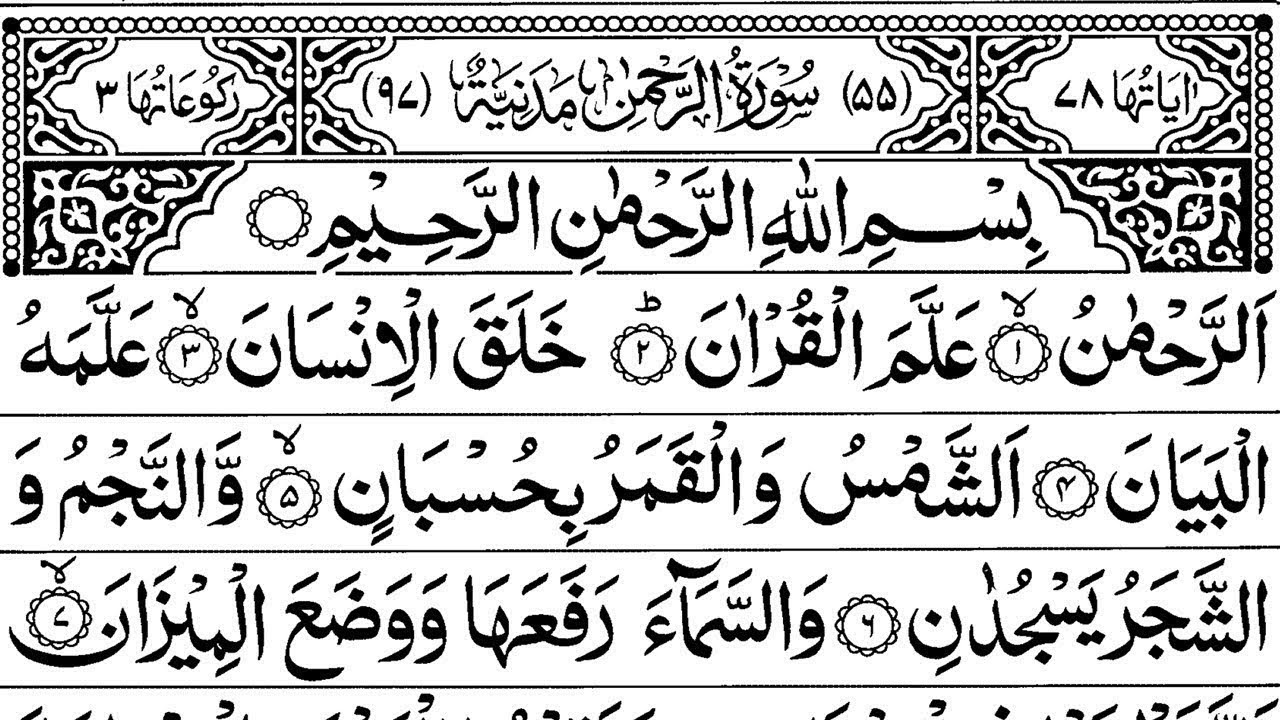 اٰيَاتُهَا ٧٨ (٥٥) سُوْرَةُ الرَّحْمٰنِ مَدَنِيَّةٌ (٩٧) رُكُوْعَاتُهَا ٣
بِسْمِ اللّٰهِ الرَّحْمٰنِ الرَّحِيْمِ
اَلرَّحْمٰنُ ۙ﴿١﴾ عَلَّمَ الْقُرْاٰنَ ؕ﴿٢﴾ خَلَقَ الْاِنْسَانَ ۙ﴿٣﴾ عَلَّمَهُ
الْبَيَانَ ﴿۴﴾ اَلشَّمْسُ وَالْقَمَرُ بِحُسْبَانٍ ۙ﴿۵﴾ وَّالنَّجْمُ وَ
الشَّجَرُ يَسْجُدٰنِ ﴿۶﴾ وَالسَّمَآءَ رَفَعَهَا وَوَضَعَ الْمِيْزَانَ ۙ﴿٧﴾